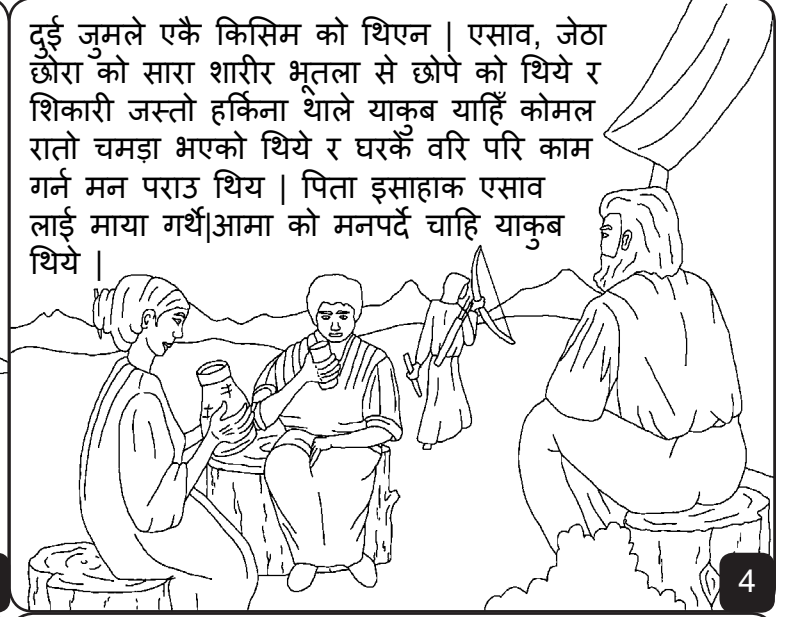 दुई जुमले एकै किसिम को थिएन | एसाव, जेठा
छोरा को सारा शारीर भूतला से छोपे को थिये र
शिकारी जस्तो हर्किना थाले याकुब याहिँ कोमल
रातो चमड़ा भएको थिये र घरकें वरि परि काम
गर्न मन पराउ थिय | पिता इसाहाक एसाव
लाई माया गर्थे|आमा को मनपर्दे चाहि याकुब
थिये |
4